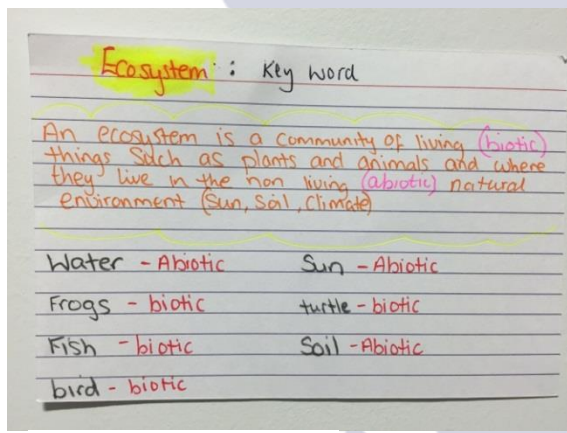 Ecosystem : Key word
An ecosystem is a community of living (biotic)
things Such as plants and animals and where
they live in the non living (abiotic) natural
environment (Sun, Soil, Climate)
Water - Abiotic Sun - Abiotic
Frogs - biotic turtle - biotic
Fish - biotic Soil - Abiotic
bird - biotic